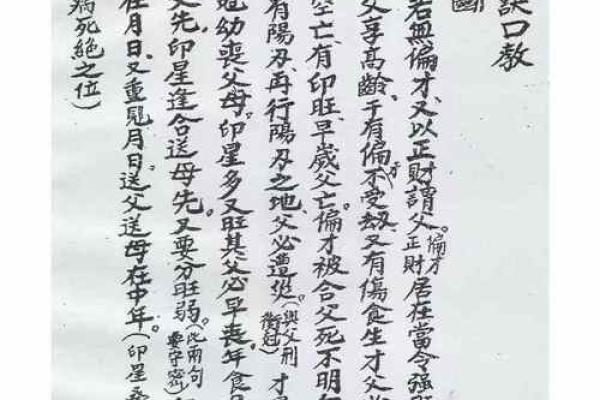 訣口教
斷
若無偏才又以正財謂父。偏才正財居在當令強
父享高齡。于有偏才不受劫又有傷食生才父
空亡有印旺早歲父亡。偏才被合父死不明
有陽刃再行陽刃之地父必遭災。(與父刑衝尅)才
幼喪父母。印星多又旺其父必早喪年食
父先,印星逢合送母先。又要分旺弱。(此兩句要守密)
在月日又重見月日送父送母在中年。(印星
病死絕之位)